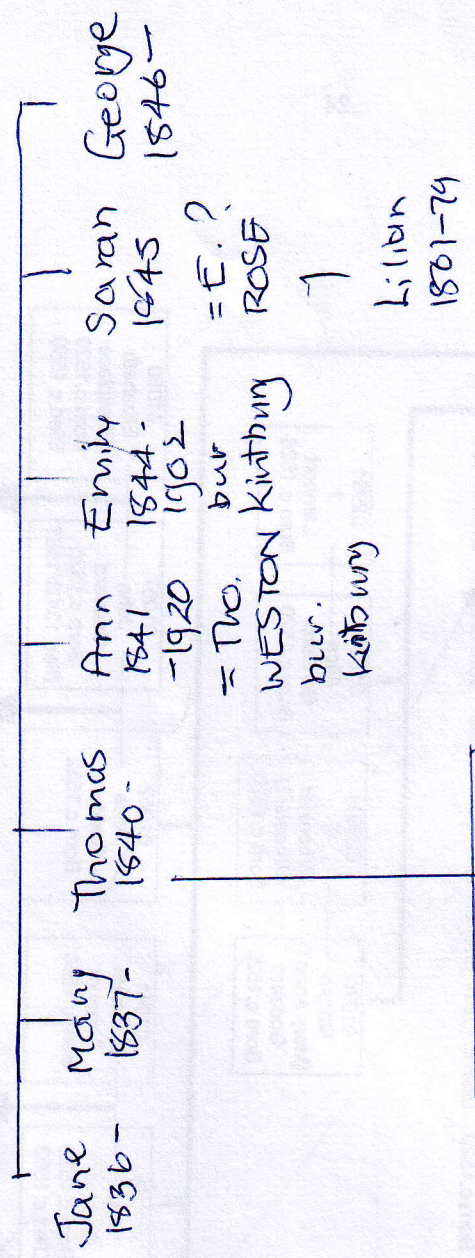 Jane
1836-
Mary
1837-
Thomas
1840-
Ann
1841
-1920
= Tho.
WESTON
bur.
Kintbury
Emily
1844-
1902
bur
Kintbury
Sarah
1845
= E.?
ROSE
Lilian
1861-79
George
1846-